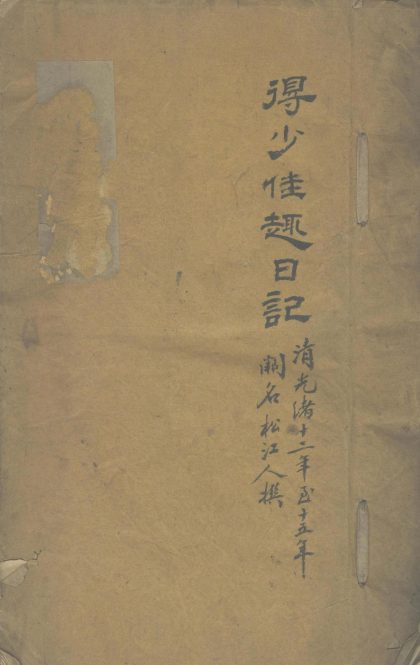 得少佳趣日記
清光緒十二年至十五年
闕名松江人撰